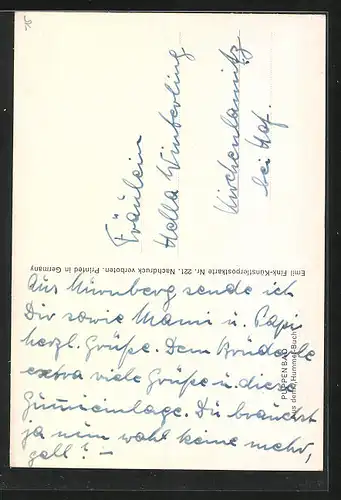 Fräulein
Hella Winterling
Kirchenlamitz
bei Hof.
Emil Fink-Künstlerpostkarte Nr. 221. Nachdruck verboten. Printed in Germany
PUPPENBAD
Aus dem „Hummel-Buch“
Aus Nürnberg sende ich
Dir sowie Mami u. Papi
herzl. Grüße. Dem Brüderle
extra viele Grüße u. diese
Gummieinlage. Du brauchst
ja nun wohl keine mehr,
gell? –